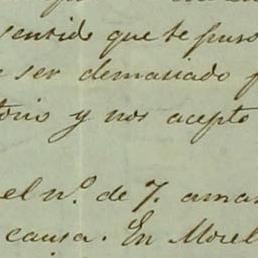 sentido que te puso
ser demasiado
torio y nos acepto
el nº. de 7. aman
causa. En Morel